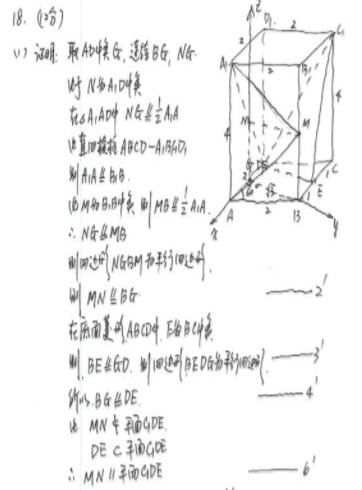 18. (12分)
(1) 证明: 取AD中点G, 连结BG, NG.
由于N为A₁D中点
在△A₁AD中 NG⫽½A₁A
由直四棱柱ABCD-A₁B₁C₁D₁
则A₁A⫽B₁B.
由M为B₁B中点, 则MB⫽½A₁A.
∴ NG⫽MB
则四边形NGBM为平行四边形.
则 MN⫽BG
2'
在底面菱形ABCD中, E为BC中点
则 BE⫽GD. 则四边形BEDG为平行四边形.
3'
所以 BG⫽DE.
4'
由 MN⊄平面C₁DE
DE⊂平面C₁DE
∴ MN∥平面C₁DE
6'
z
D₁
2
C₁
A₁
2
B₁
4
4
N
M
C
E
A
2
B
x
y